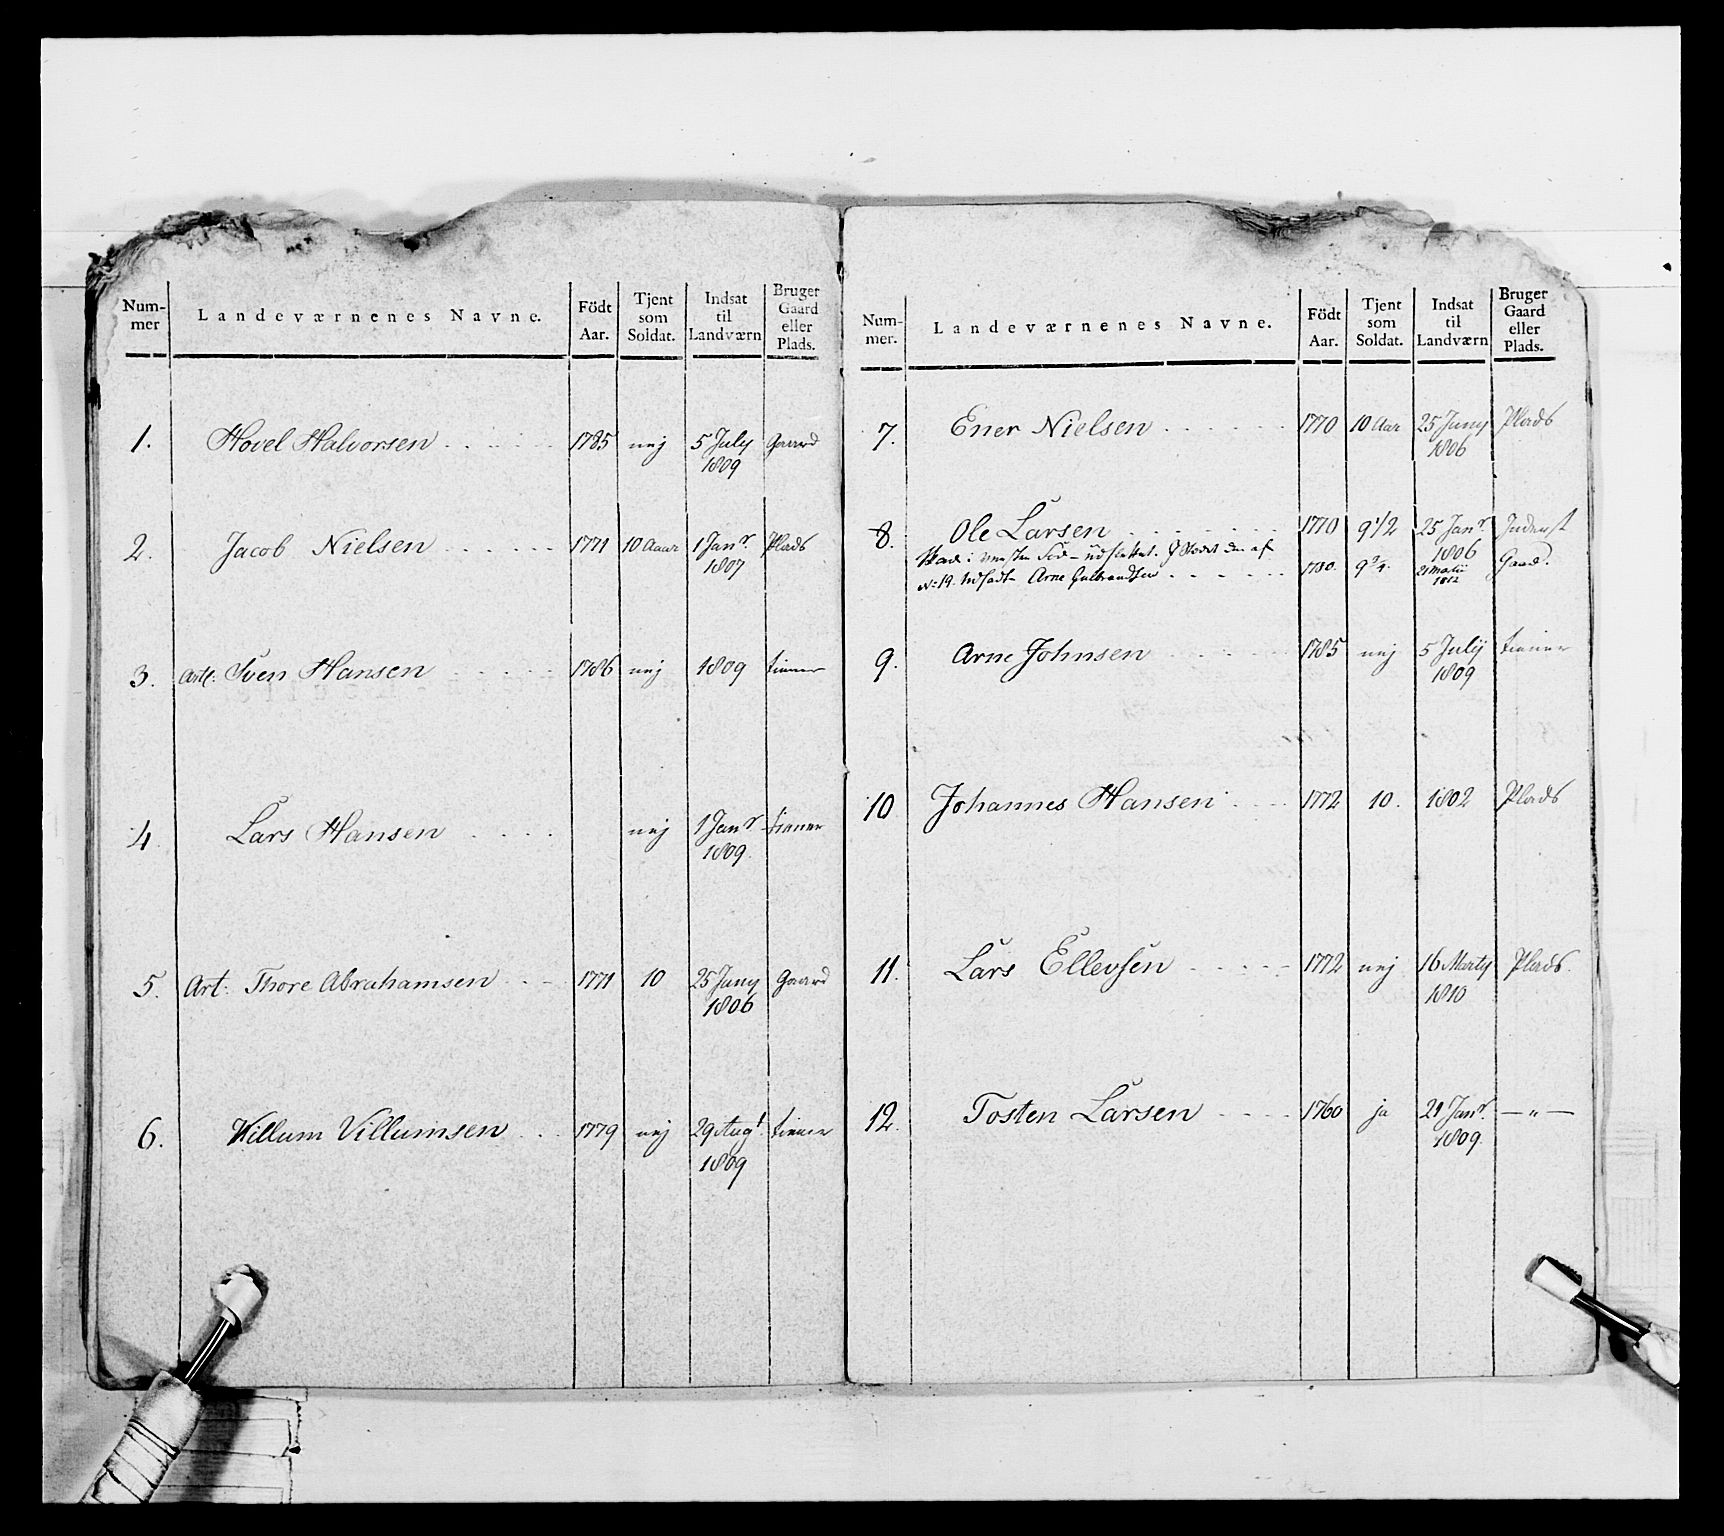 Num-
mer
Landeværnenes Navne.
Födt
Aar.
Tjent
som
Soldat.
Indsat
til
Landværn
Bruger
Gaard
eller
Plads.
1. Hovel Halvorsen 1785 nej 5 July Gaard
1809
2. Jacob Nielsen 1771 10 Aaar 1 Janr. Plads
1807
3. Artl: Sven Hansen 1786 nej 1809 tiener
4. Lars Hansen nej 1 Janr tiener
1809.
5. Art: Thore Abrahamsen 1771 10 25 Juny Gaard
1806
6. Villum Villumsen 1779 nej 29 Augt tiener
1809
Num-
mer.
Landeværnenes Navne.
Födt
Aar.
Tjent
som
Soldat.
Indsat
til
Landværn
Bruger
Gaard
eller
Plads.
7. Ener Nielsen 1770 10 Aar 25 Juny Plads
1806
8. Ole Larsen 1770 9 1/2 25 Janr Inderst
1806
udslettet. af
No 19. Indsadt Arne Gulbrandsen 1780. 9 3/4. 21 Martii Gaard.
1812
9. Arne Johnsen 1785 nej 5 July tiener
1809
10 Johannes Hansen 1772 10. 1802 Plads
11. Lars Ellevsen 1772 nej 16 Marty Plads.
1810
12. Tosten Larsen 1760 ja 21 Janr —"—
1809.